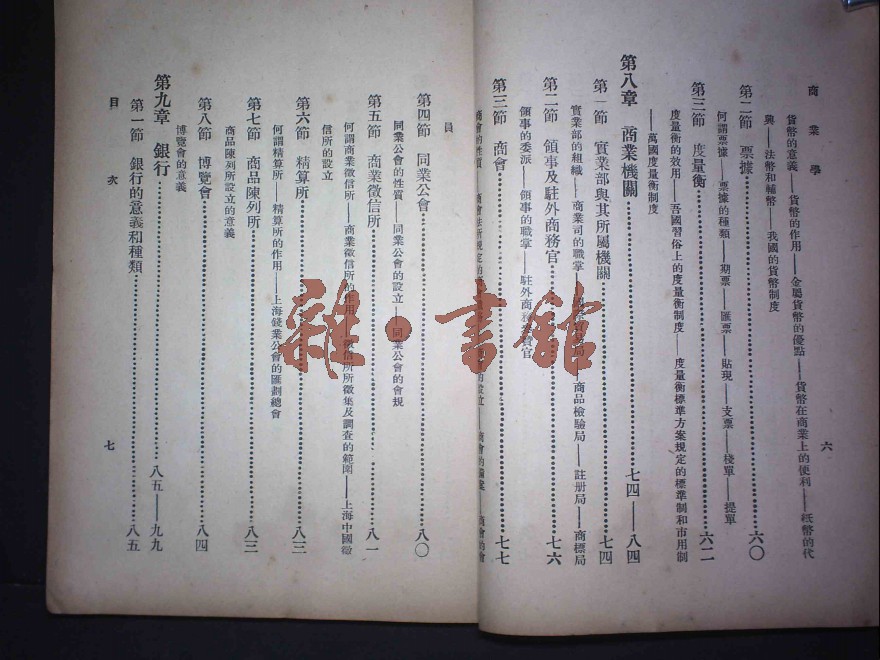 商業學
六
貨幣的意義——貨幣的作用——金屬貨幣的優點——貨幣在商業上的便利——紙幣的代
興——法幣和輔幣——我國的貨幣制度
第二節 票據……六〇
何謂票據——票據的種類——期票——匯票——貼現——支票——棧單——提單
第三節 度量衡……六二
度量衡的效用——吾國習俗上的度量衡制度——度量衡標準方案規定的標準制和市用制
——萬國度量衡制度
第八章 商業機關……七四——八四
第一節 實業部與其所屬機關……七四
實業部的組織——商業司的職掌——局——商品檢驗局——註册局——商標局
第二節 領事及駐外商務官……七六
領事的委派——領事的職掌——駐外商務官
第三節 商會……七七
商會的性質——商會法所規定的的設立——商會的——商會的會
員
第四節 同業公會……八〇
同業公會的性質——同業公會的設立——同業公會的會規
第五節 商業徵信所……八一
何謂商業徵信所——商業徵信所的作用——徵信所所徵集及調查的範圍——上海中國徵
信所的設立
第六節 精算所……八三
何謂精算所——精算所的作用——上海錢業公會的匯劃總會
第七節 商品陳列所……八三
商品陳列所設立的意義
第八節 博覽會……八四
博覽會的意義
第九章 銀行……八五——九九
第一節 銀行的意義和種類……八五
目次
七
雜·書館